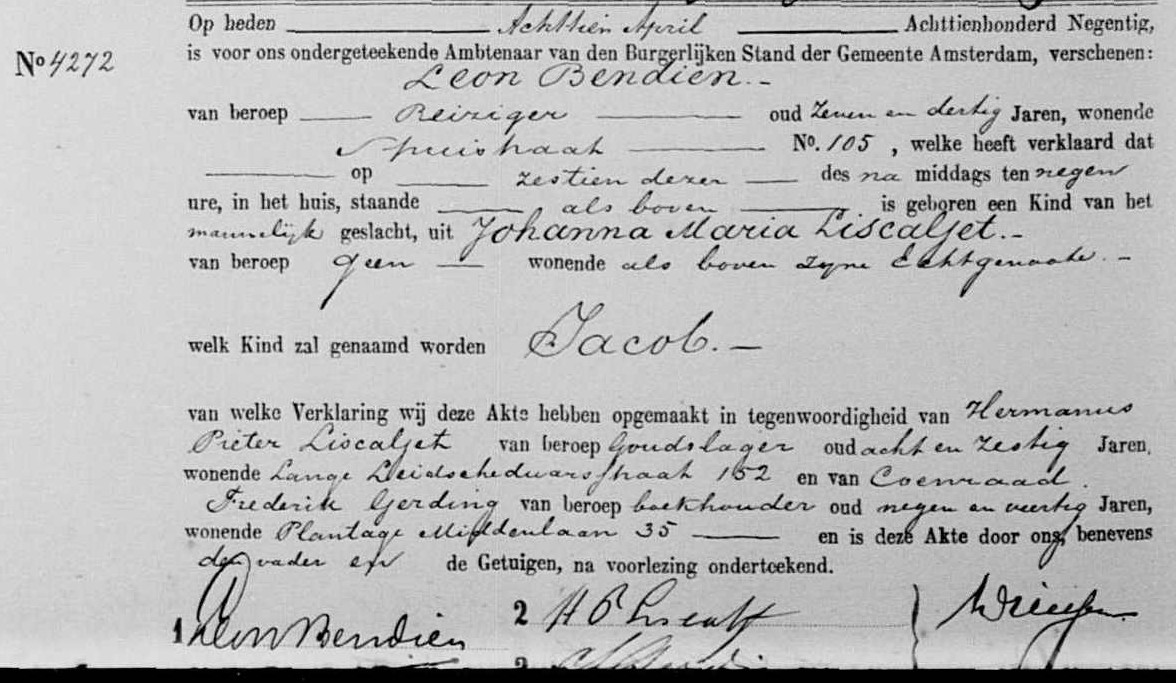 Op heden Achttien April Achttienhonderd Negentig,
No 4272 is voor ons ondergeteekende Ambtenaar van den Burgerlijken Stand der Gemeente Amsterdam, verschenen:
Leon Bendien.
van beroep Reiziger oud Zeven en dertig Jaren, wonende
Spuistraat No. 105, welke heeft verklaard dat
op zestien dezer des na middags ten negen
ure, in het huis, staande als boven is geboren een Kind van het
mannelijk geslacht, uit Johanna Maria Liscaljet.
van beroep geen wonende als boven zyne Echtgenoote.
welk Kind zal genaamd worden Jacob.
van welke Verklaring wij deze Akte hebben opgemaakt in tegenwoordigheid van Hermanus
Pieter Liscaljet van beroep Goudslager oud acht en Zestig Jaren,
wonende Lange Leidschedwarsstraat 152 en van Coenraad
Frederik Gerding van beroep boekhouder oud negen en veertig Jaren,
wonende Plantage Middenlaan 35 en is deze Akte door ons, benevens
den vader en de Getuigen, na voorlezing onderteekend.
1 Leon Bendien 2 H P Liscaljet
3